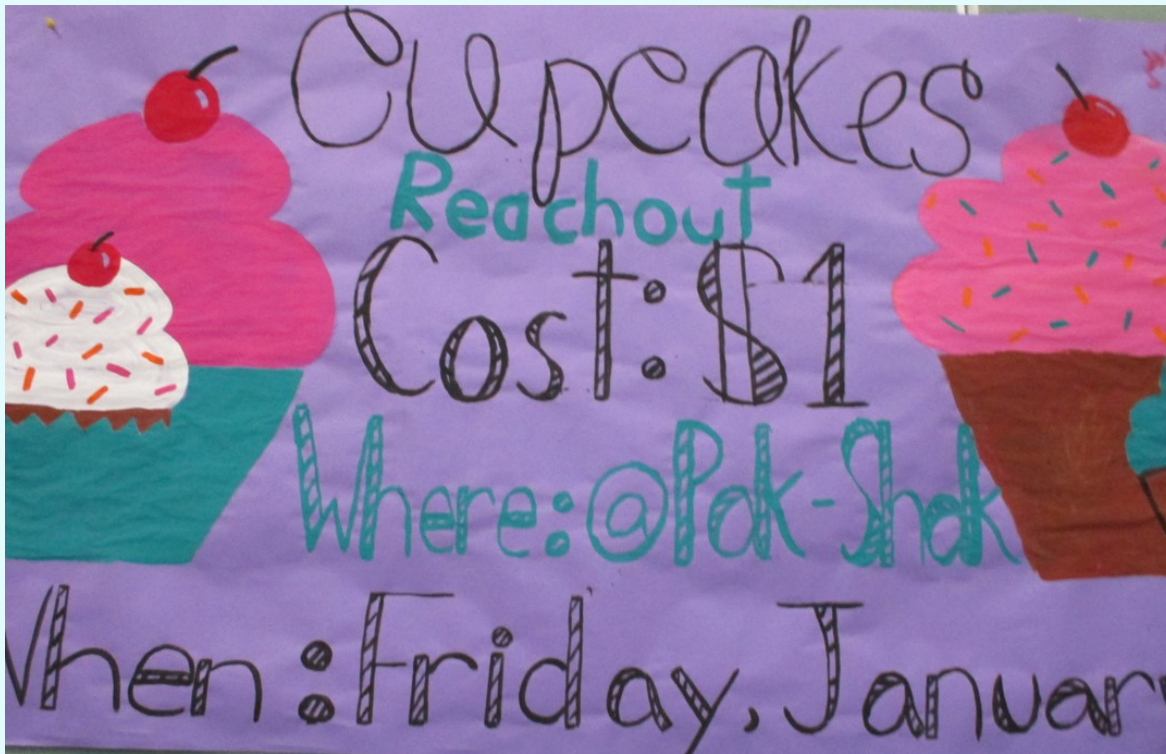 Cupcakes
Reachout
Cost: $1
Where: @Pak-Shak
When: Friday, Januar